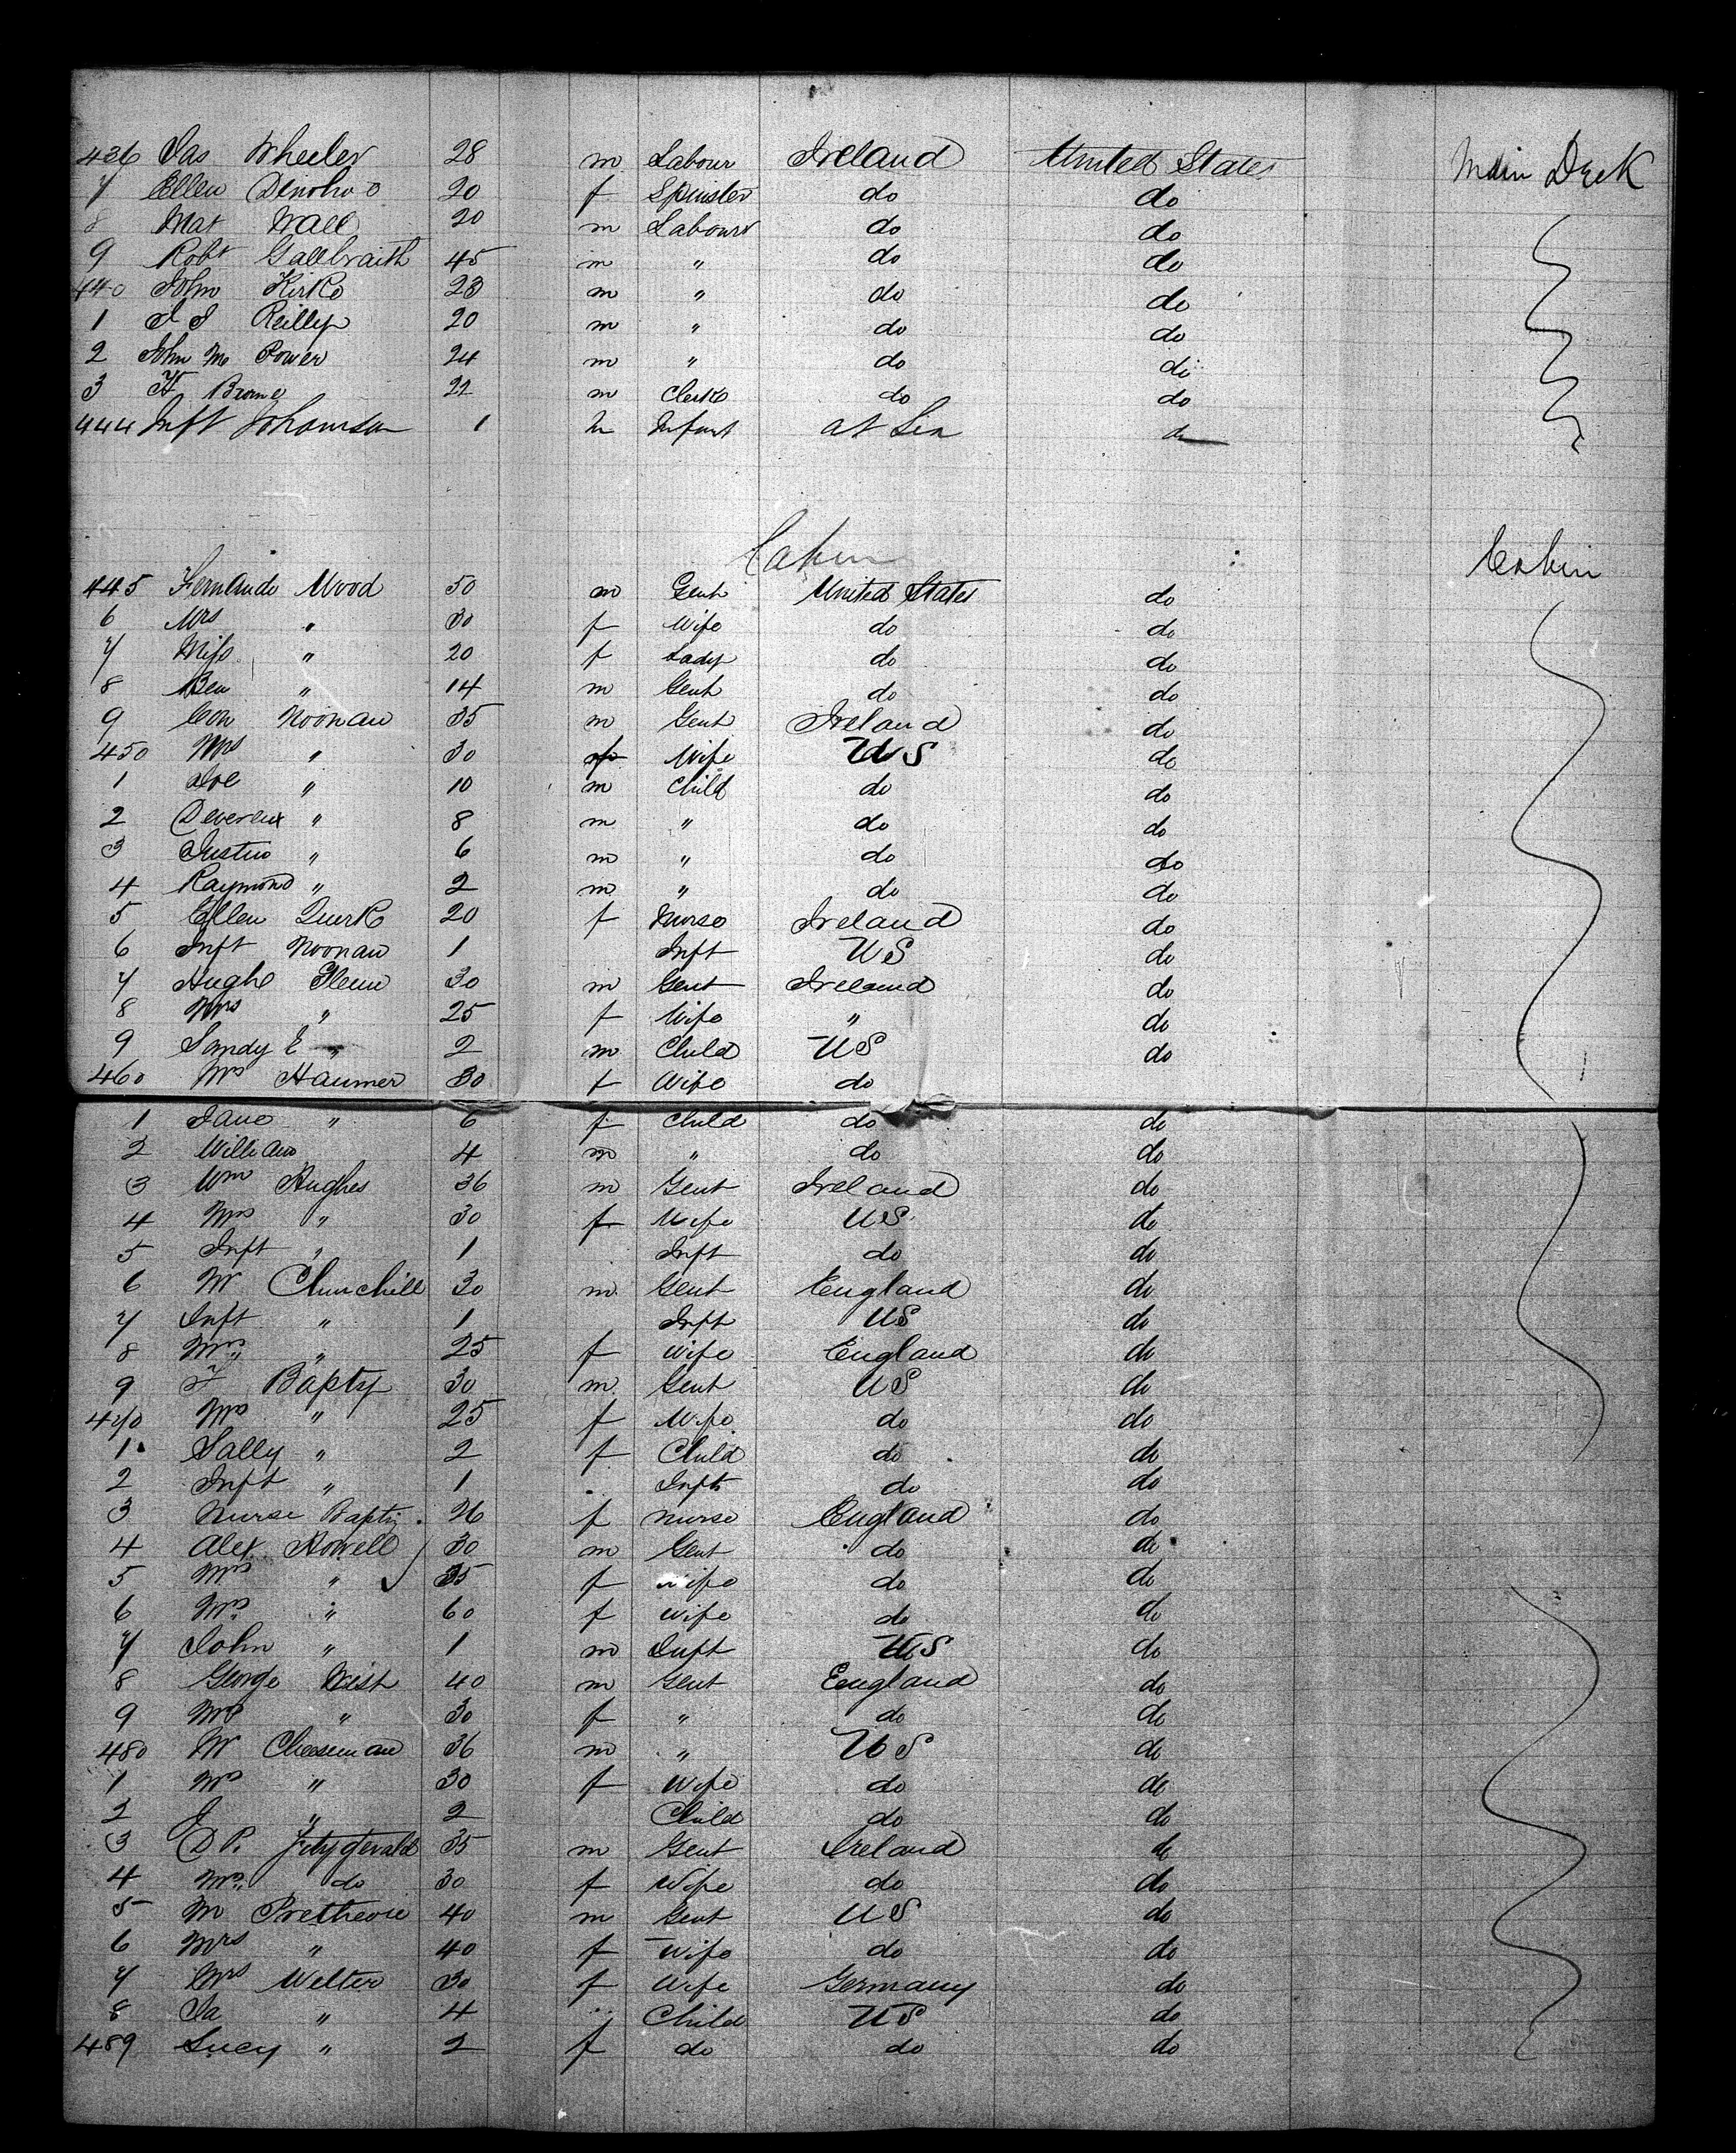 436 Jas Wheeler 28 m Labour Ireland United States Main Deck
7 Ellen Dinohoo 20 f Spinster do do
8 Mat Wall 20 m Labourr do do
9 Robt Gallbraith 45 m " do do
440 John Kirk 23 m " do do
1 J J Reilly 20 m " do do
2 John Mc Power 24 m " do do
3 H Brome 22 m Clerk do do
444 Inft Johamsen 1 m Infant at Sea do
Cabin Cabin
445 Fernando Wood 50 m Gent United States do
6 Mrs " 30 f Wife do do
7 Miss " 20 f Lady do do
8 Ben " 14 m Gent do do
9 Con Noonan 35 m Gent Ireland do
450 Mrs " 30 f Wife US do
1 Joe " 10 m Child do do
2 Devereux " 8 m " do do
3 Justus " 6 m " do do
4 Raymond " 2 m " do do
5 Ellen Quirk 20 f Nurse Ireland do
6 Inft Noonan 1 Inft US do
7 Hugh Glenn 30 m Gent Ireland do
8 Mrs " 25 f Wife " do
9 Sandy E " 2 m Child US do
460 Mrs Haumer 30 f Wife do
1 Jane " 6 f Child do do
2 William 4 m " do do
3 Wm Hughes 36 m Gent Ireland do
4 Mrs " 30 f Wife US do
5 Inft " 1 Inft do do
6 W Churchill 30 m Gent England do
7 Inft " 1 Inft US do
8 Mrs " 25 f Wife England do
9 F Bapty 30 m Gent US do
470 Mrs " 25 f Wife do do
1 Sally " 2 f Child do do
2 Inft " 1 Inft do do
3 Nurse Bapty 26 f Nurse England do
4 Alex Howell 30 m Gent do do
5 Mrs " 35 f Wife do do
6 Mrs " 60 f Wife do do
7 John " 1 m Inft US do
8 George West 40 m Gent England do
9 Mrs " 30 f " do do
480 W Cheeseman 36 m " US do
1 Mrs " 30 f Wife do do
2 J " 2 Child do do
3 D P. Fitzgerald 35 m Gent Ireland do
4 Mrs do 30 f Wife do do
5 M 40 m Gent US do
6 Mrs " 40 f Wife do do
7 Mrs Welter 30 f Wife Germany do
8 Ja " 4 " Child US do
489 Lucy " 2 f do do do